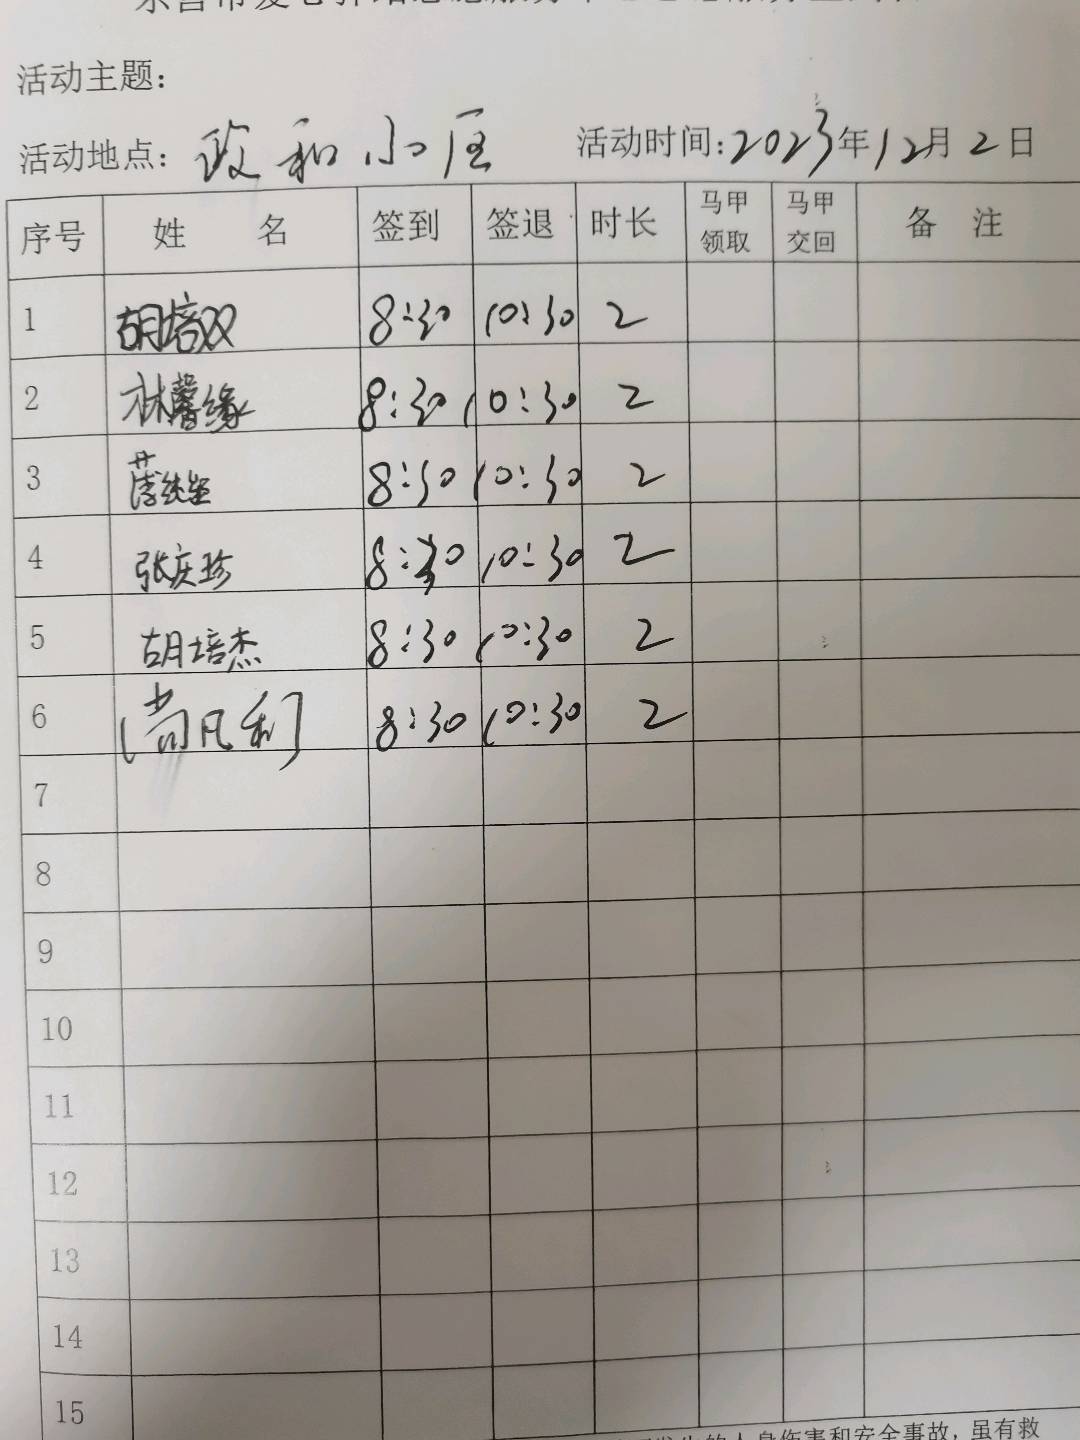 活动主题：
活动地点：政和小区 活动时间：2023年12月2日
序号 姓 名 签到 签退 时长 马甲领取 马甲交回 备 注
1 胡培双 8:30 10:30 2
2 林馨缘 8:30 10:30 2
3 8:30 10:30 2
4 张庆珍 8:30 10:30 2
5 胡培杰 8:30 10:30 2
6 (尚凡利] 8:30 10:30 2
7
8
9
10
11
12
13
14
15
人身伤害和安全事故，虽有救